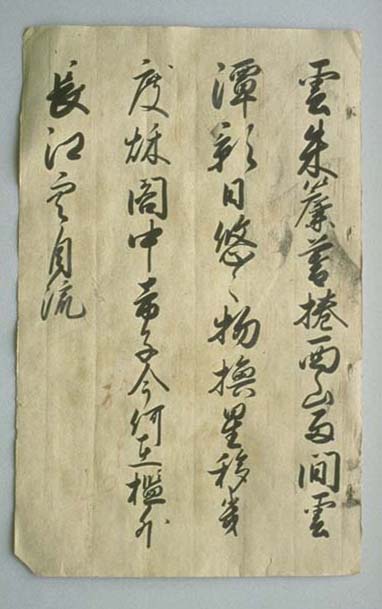 雲朱簾暮捲西山雨間雲
潭影日悠々物換星移幾
度秋閣中帝子今何在檻外
長江空自流